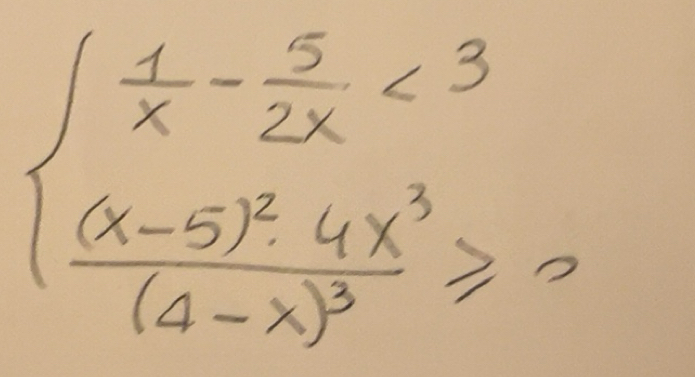 1/x - 5/2x < 3
(x-5)². 4x³/(4-x)³ ⩾ 0